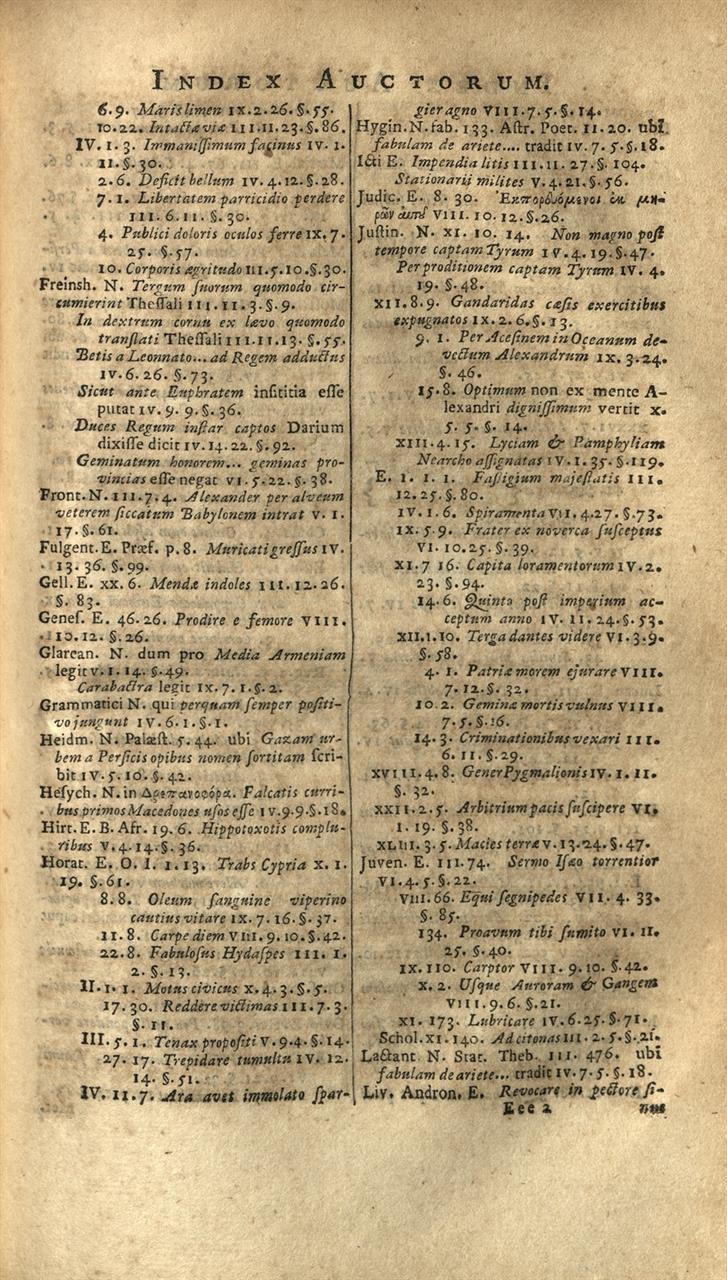 INDEX AUCTORUM.
6.9. Maris limen IX.2.26.§.55.
10.22. Intactæ viæ III.11.23.§.86.
IV.1.3. Immanissimum facinus IV.1.
11.§.30.
2.6. Deficit bellum IV.4.12.§.28.
7.1. Libertatem parricidio perdere
III.6.11.§.30.
4. Publici doloris oculos ferre IX.7.
25.§.57.
10. Corporis ægritudo III.5.10.§.30.
Freinsh. N. Tergum suorum quomodo cir-
cumierint Thessali III.11.3.§.9.
In dextrum cornu ex lævo quomodo
translati Thessali III.11.13.§.55.
Betis a Leonnato... ad Regem adductus
IV.6.26.§.73.
Sicut ante Euphratem insititia esse
putat IV.9.9.§.36.
Duces Regum instar captos Darium
dixisse dicit IV.14.22.§.92.
Geminatum honorem... geminas pro-
vincias esse negat VI.5.22.§.38.
Front. N. III.7.4. Alexander per alveum
veterem siccatum Babylonem intrat V.1.
17.§.61.
Fulgent. E. Præf. p. 8. Muricati gressus IV.
13.36.§.99.
Gell. E. XX.6. Mendæ indoles III.12.26.
§.83.
Genes. E. 46.26. Prodire e femore VIII.
10.12.§.26.
Glarean. N. dum pro Media Armeniam
legit V.1.14.§.49.
Carabactra legit IX.7.1.§.2.
Grammatici N. qui perquam semper positi-
vo jungunt IV.6.1.§.1.
Heidm. N. Palæst. 5.44. ubi Gazam ur-
bem a Persicis opibus nomen sortitam scri-
bit IV.5.10.§.42.
Hesych. N. in Δρεπανοφόρα. Falcatis curri-
bus primos Macedones usos esse IV.9.9.§.18.
Hirt. E. B. Afr. 19.6. Hippotoxotis complu-
ribus V.4.14.§.36.
Horat. E. O. I.1.13. Trabs Cypria X.1.
19.§.61.
8.8. Oleum sanguine viperino
cautius vitare IX.7.16.§.37.
11.8. Carpe diem VIII.9.10.§.42.
22.8. Fabulosus Hydaspes III.1.
2.§.13.
II.1.1. Motus civicus X.4.3.§.5.
17.30. Reddere victimas III.7.3.
§.11.
III.5.1. Tenax propositi V.9.4.§.14.
27.17. Trepidare tumultu IV.12.
14.§.51.
IV.11.7. Ara avet immolato spar-
gier agno VIII.7.5.§.14.
Hygin. N. fab. 133. Astr. Poet. II.20. ubi
fabulam de ariete... tradit IV.7.5.§.18.
Icti E. Impendia litis III.11.27.§.104.
Stationarii milites V.4.21.§.56.
Judic. E. 8.30. Ἐκπορευόμενοι ἐκ μη-
ρῶν αὐτοῦ VIII.10.12.§.26.
Justin. N. XI.10.14. Non magno post
tempore captam Tyrum IV.4.19.§.47.
Per proditionem captam Tyrum IV.4.
19.§.48.
XII.8.9. Gandaridas cæsis exercitibus
expugnatos IX.2.6.§.13.
9.1. Per Acesinem in Oceanum de-
vectum Alexandrum IX.3.24.
§.46.
15.8. Optimum non ex mente A-
lexandri dignissimum vertit X.
5.5.§.14.
XIII.4.15. Lyciam & Pamphyliam
Nearcho assignatas IV.1.35.§.119.
E. I.1.1. Fastigium majestatis III.
12.25.§.80.
IV.1.6. Spiramenta VII.4.27.§.73.
IX.5.9. Frater ex noverca susceptus
VI.10.25.§.39.
XI.7 16. Capita loramentorum IV.2.
23.§.94.
14.6. Quinto post imperium ac-
ceptum anno IV.11.24.§.53.
XII.1.10. Terga dantes videre VI.3.9.
§.58.
4.1. Patriæ morem ejurare VIII.
7.12.§.32.
10.2. Geminæ mortis vulnus VIII.
7.5.§.16.
14.3. Criminationibus vexari III.
6.11.§.29.
XVIII.4.8. Gener Pygmalionis IV.1.11.
§.32.
XXII.2.5. Arbitrium pacis suscipere VI.
1.19.§.38.
XLIII.3.5. Macies terræ V.13.24.§.47.
Juven. E. III.74. Sermo Isæo torrentior
VI.4.5.§.22.
VIII.66. Equi segnipedes VII.4.33.
§.85.
134. Proavum tibi sumito VI.11.
25.§.40.
IX.110. Carptor VIII.9.10.§.42.
X.2. Usque Auroram & Gangem
VIII.9.6.§.21.
XI.173. Lubricare IV.6.25.§.71.
Schol. XI.140. Ad citonas III.2.5.§.21.
Lactant. N. Stat. Theb. III.476. ubi
fabulam de ariete... tradit IV.7.5.§.18.
Liv. Andron. E. Revocare in pectore si-
Eee 2 nus